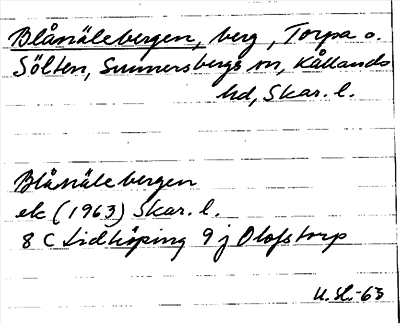 Blånälebergen, berg, Torpa o.
Sölten, Sunnersbergs sn, Kållands
hd, Skar. l.
Blånälebergen
ek (1963) Skar. l.
8 C Lidköping 9 j Olofstorp
-63